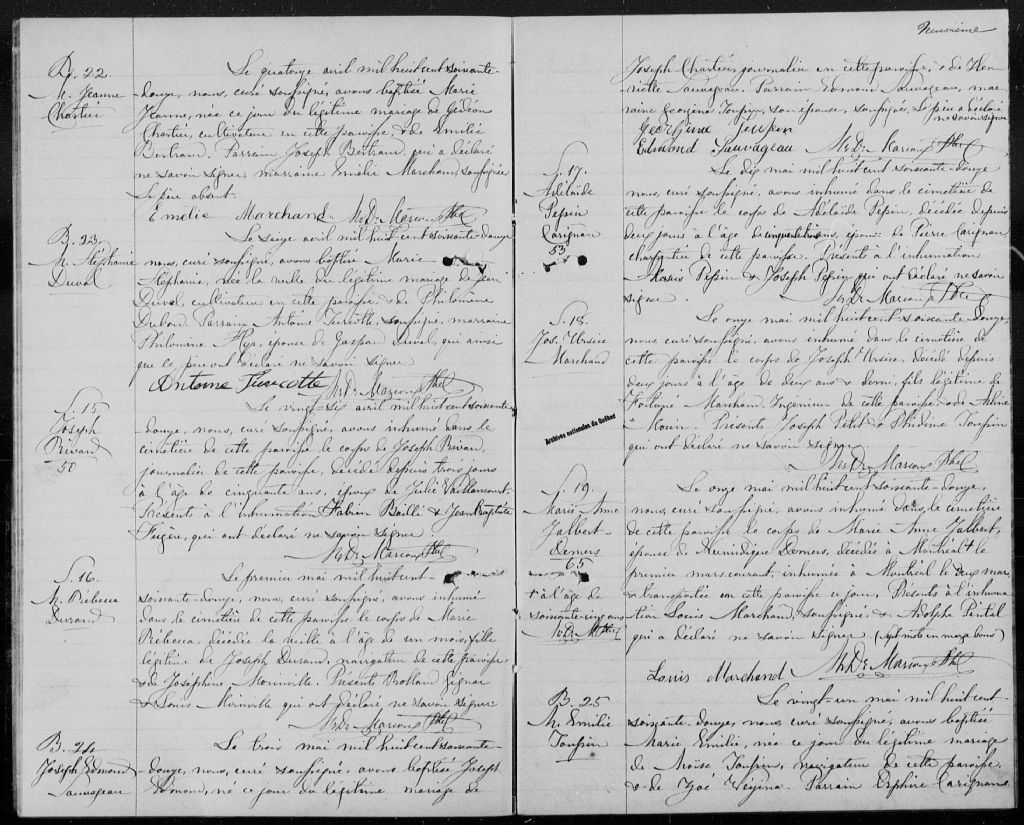 B. 22.
M. Jeanne
Chartié
Le quatorze avril mil huit cent soixante-
-douze, nous, curé soussigné, avons baptisé Marie
Jeanne, née ce jour du légitime mariage de Gédéon
Chartié, cultivateur en cette paroisse, & de Emilie
Bertrand. Parrain Joseph Bertrand, qui a déclaré
ne savoir signer, marraine Emélie Marchand, soussignée
Le père absent.
Emélie Marchand. Ptre
B. 23.
M. Stéphanie
Duval
Le seize avril mil huit cent soixante-douze
nous, curé soussigné, avons baptisé Marie
Stéphanie, née la veille du légitime mariage de
Duval, cultivateur en cette paroisse, & de Philomène
Dubord. Parrain Antoine Turcotte, soussigné, marraine
Philomène épouse de Gaspard Duval, qui ainsi
que le père ont déclaré ne savoir signer
Antoine Turcotte Ptre
S. 15
Joseph
Rivard
50
Le vingt six avril mil huit cent soixante
-douze, nous, curé soussigné, avons inhumé dans le
cimetière de cette paroisse le corps de Joseph Rivard,
journalier de cette paroisse, décédé depuis trois jours
à l'âge de cinquante ans, époux de Julie Vaillancourt.
Présents à l'inhumation Fabien Baillé & Jean Baptiste
qui ont déclaré ne savoir signer.
Ptre
S. 16.
M. Rébecca
Durand
Le premier mai mil huit cent-
soixante-douze, nous, curé soussigné, avons inhumé
dans le cimetière de cette paroisse le corps de Marie
Rébecca, décédée la veille à l'âge de un mois, fille
légitime de Joseph Durand, navigateur de cette paroisse,
& de Joséphine Morinville. Présents Rolland Gignac
& Louis qui ont déclaré ne savoir signer.
Ptre
B. 24
Joseph Edmond
Sauvageau
Le trois mai mil huit cent soixante-
-douze, nous, curé soussigné, avons baptisé Joseph
Edmond, né ce jour du légitime mariage de
Neuvième
Joseph Chartier, journalier en cette paroisse, & de Hen-
riette Sauvageau. Parrain Edmond Sauvageau, mar-
raine Georgina Toupin, son épouse, soussignés. Le père a déclaré
ne savoir signer
Edmond Sauvageau Ptre
S. 17.
Adélaïde
Pepin
Carignan
53
Le dix mai mil huit cent soixante-douze
nous, curé soussigné, avons inhumé dans le cimetière de
cette paroisse le corps de Adélaïde Pepin, décédée depuis
deux jours à l'âge de cinquante trois ans, épouse de Pierre Carignan
charpentier de cette paroisse. Présents à l'inhumation
Pepin & Joseph Pepin qui ont déclaré ne savoir
signer. Ptre
S. 18.
Jos. Ursice
Marchand
Le onze mai mil huit cent soixante-douze,
nous curé soussigné, avons inhumé dans le cimetière de
cette paroisse le corps de Joseph Ursice, décédé depuis
deux jours à l'âge de deux ans & demi, fils légitime de
Fortuné Marchand, Ingénieur de cette paroisse & de
Morin. Présents Joseph Petit & Toupin
qui ont déclaré ne savoir signer
Ptre
Archives nationales du Québec
S. 19.
Marie Anne
Jalbert
Demers
65
+ à l'âge de
soixante-cinq ans
Le onze mai mil huit cent soixante-douze,
nous, curé soussigné, avons inhumé dans le cimetière
de cette paroisse le corps de Marie Anne Jalbert,
épouse de Demers, décédée à Montréal + le
premier mars courant, inhumée à Montréal le deux mars,
& transportée en cette paroisse ce jour. Présents à l'inhuma-
-tion Louis Marchand, soussigné, & Adolphe
qui a déclaré ne savoir signer (sept mots en marge bons)
Louis Marchand Ptre
B. 25
M. Emilie
Toupin
Le vingt-un mai mil huit cent-
soixante-douze, nous, curé soussigné, avons baptisé
Marie Emilie, née ce jour du légitime mariage
de Moïse Toupin, navigateur de cette paroisse,
& de Zoé Vézina. Parrain Carignan